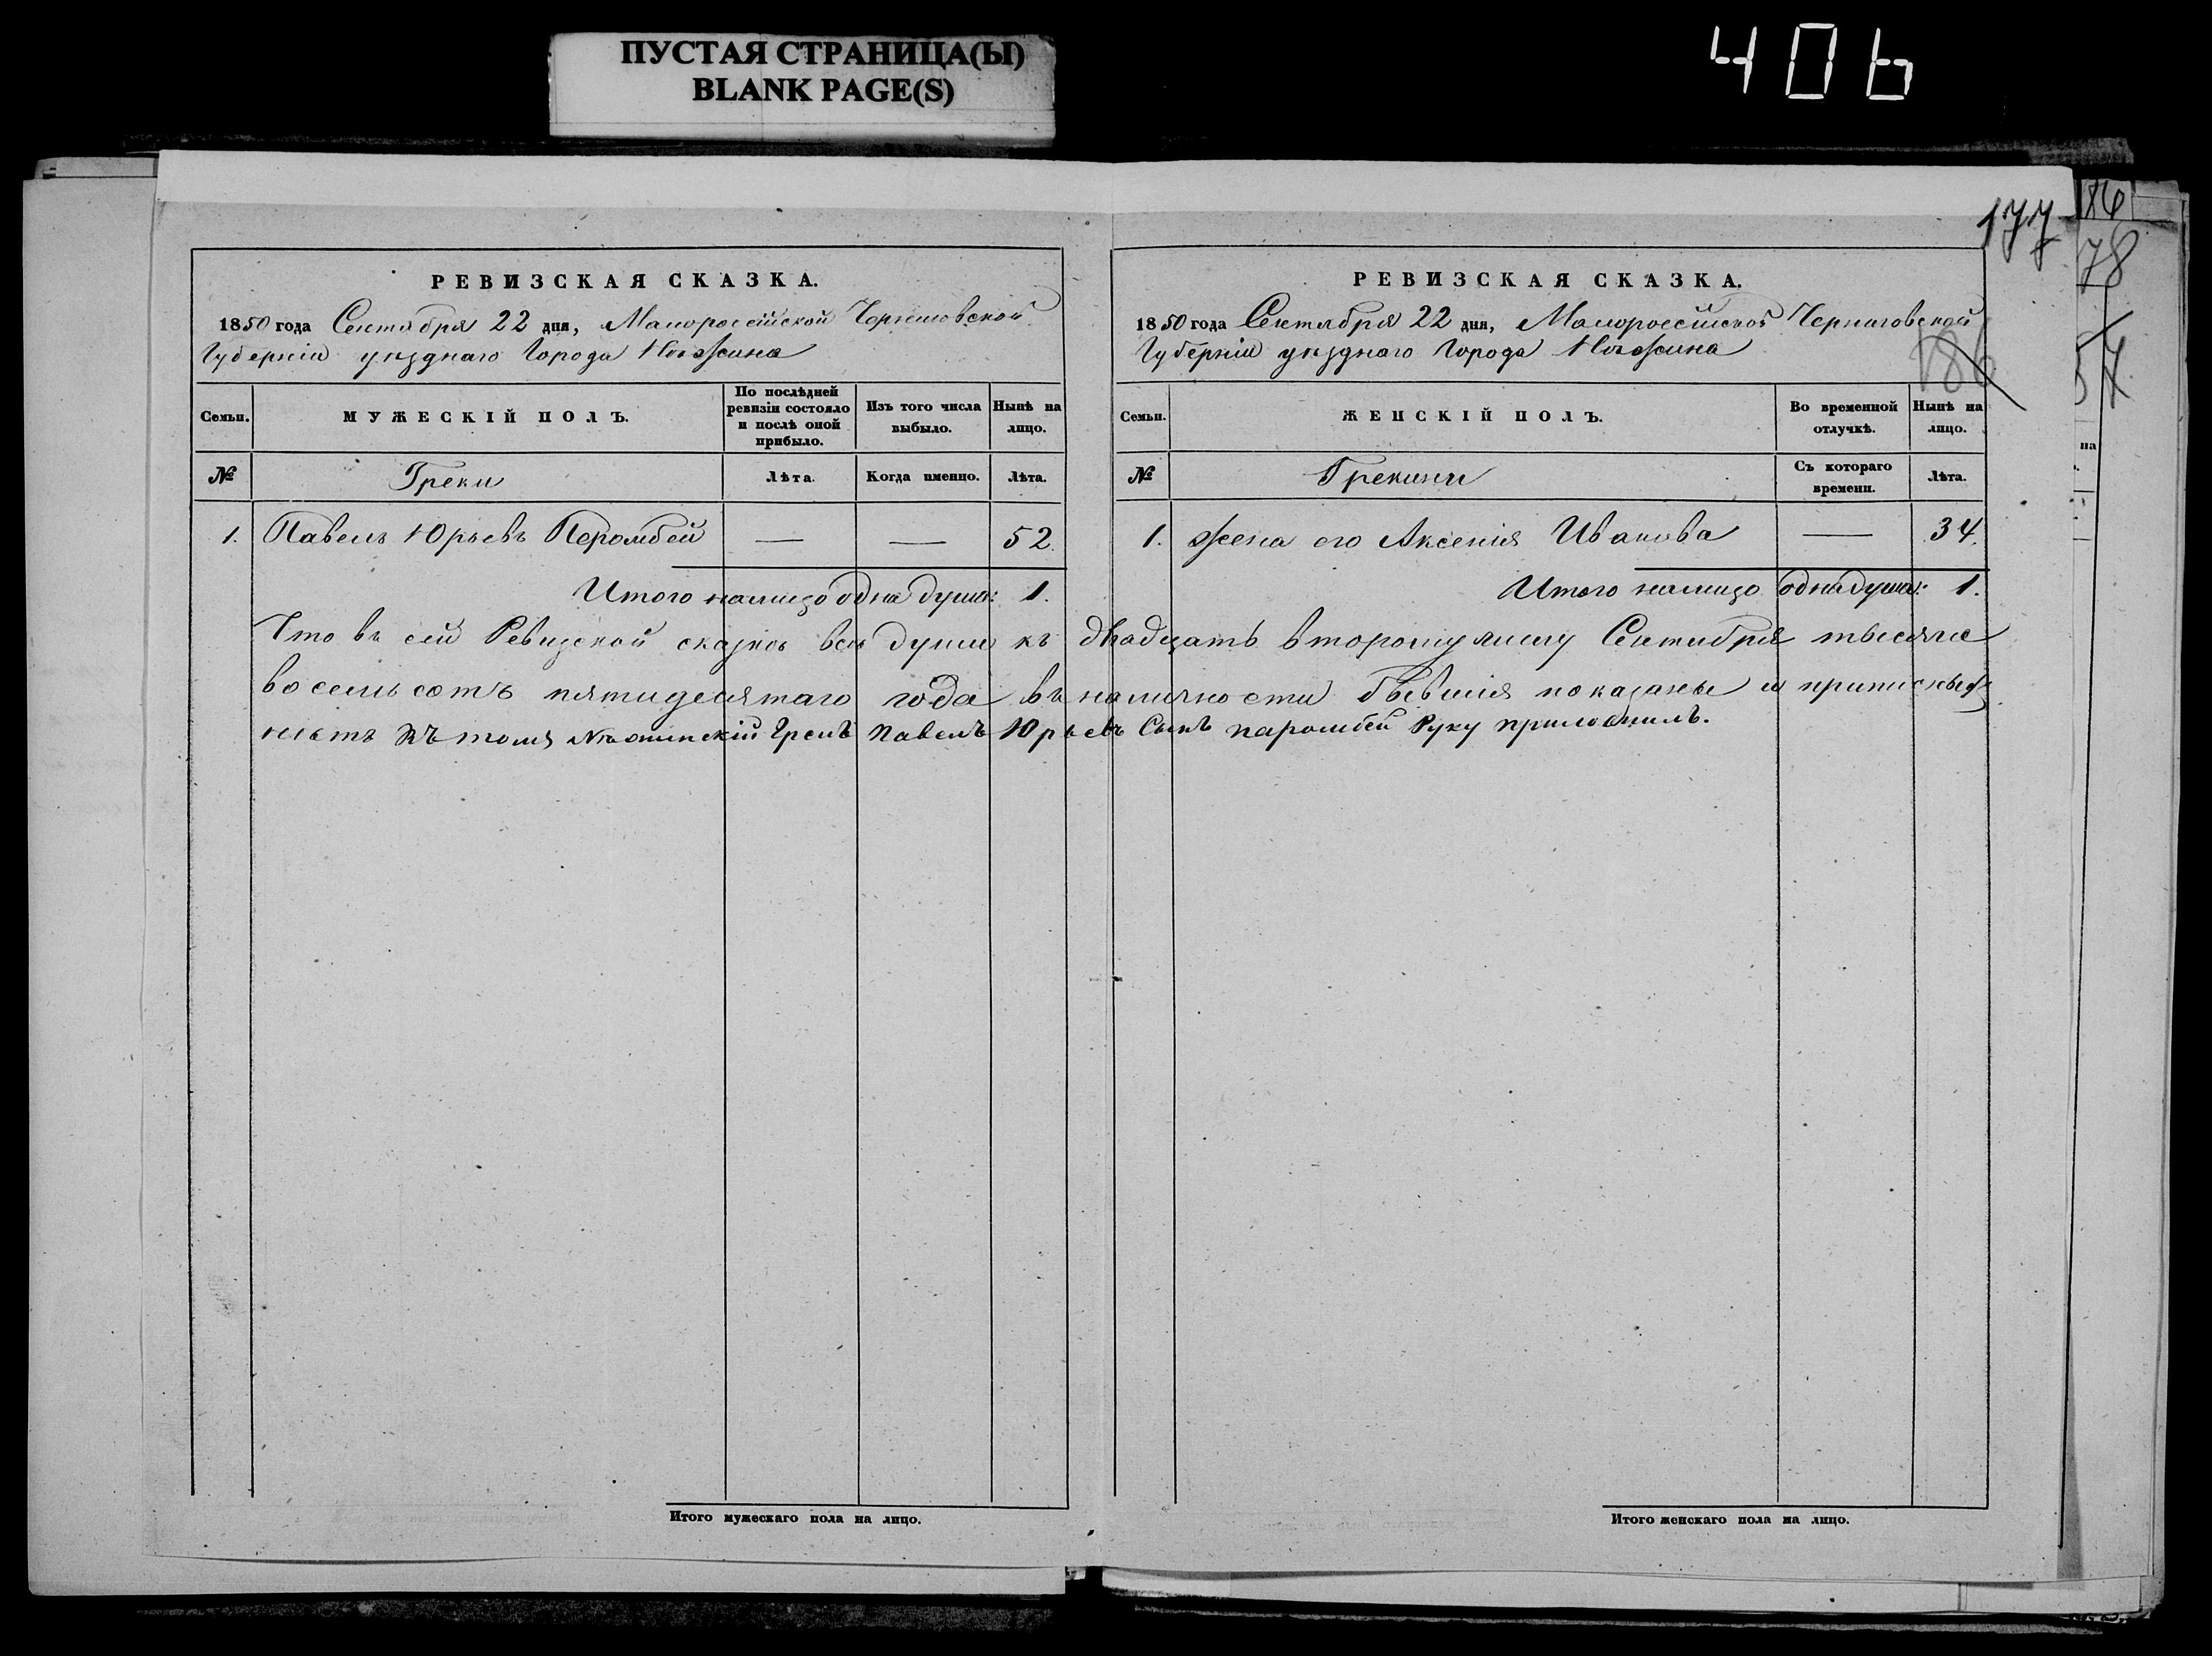 ПУСТАЯ СТРАНИЦА(Ы)
BLANK PAGE(S)
406
177
186
78
57
186
на
РЕВИЗСКАЯ СКАЗКА.
1850 года Сентября 22 дня, Малороссійской Черниговской
Губерніи уѣзднаго Города Нѣжина
Семьи.
МУЖЕСКІЙ ПОЛЪ.
По послѣдней ревизіи состояло и послѣ оной прибыло.
Изъ того числа выбыло.
Нынѣ на лицо.
№ Греки Лѣта. Когда именно. Лѣта.
1. Павелъ Юрьевъ Перомбей — — 52.
Итого налицо одна душа: 1.
РЕВИЗСКАЯ СКАЗКА.
1850 года Сентября 22 дня, Малороссійской Черниговской
Губерніи уѣзднаго Города Нѣжина
Семьи.
ЖЕНСКІЙ ПОЛЪ.
Во временной отлучкѣ.
Нынѣ на лицо.
№ Грекини Съ котораго времени. Лѣта.
1. Жена его Аксенія Иванова — 34.
Итого налицо одна душа: 1.
Что въ сей Ревизской сказкѣ все души къ двадцать второму числу Сентября тысяча
восемьсотъ пятидесятаго года въ наличности бывшія показаны и приписныхъ
нѣтъ Къ тому Нѣжинскій Грекъ Павелъ Юрьевъ Сынъ паромбей Руку приложилъ.
Итого мужескаго пола на лицо.
Итого женскаго пола на лицо.